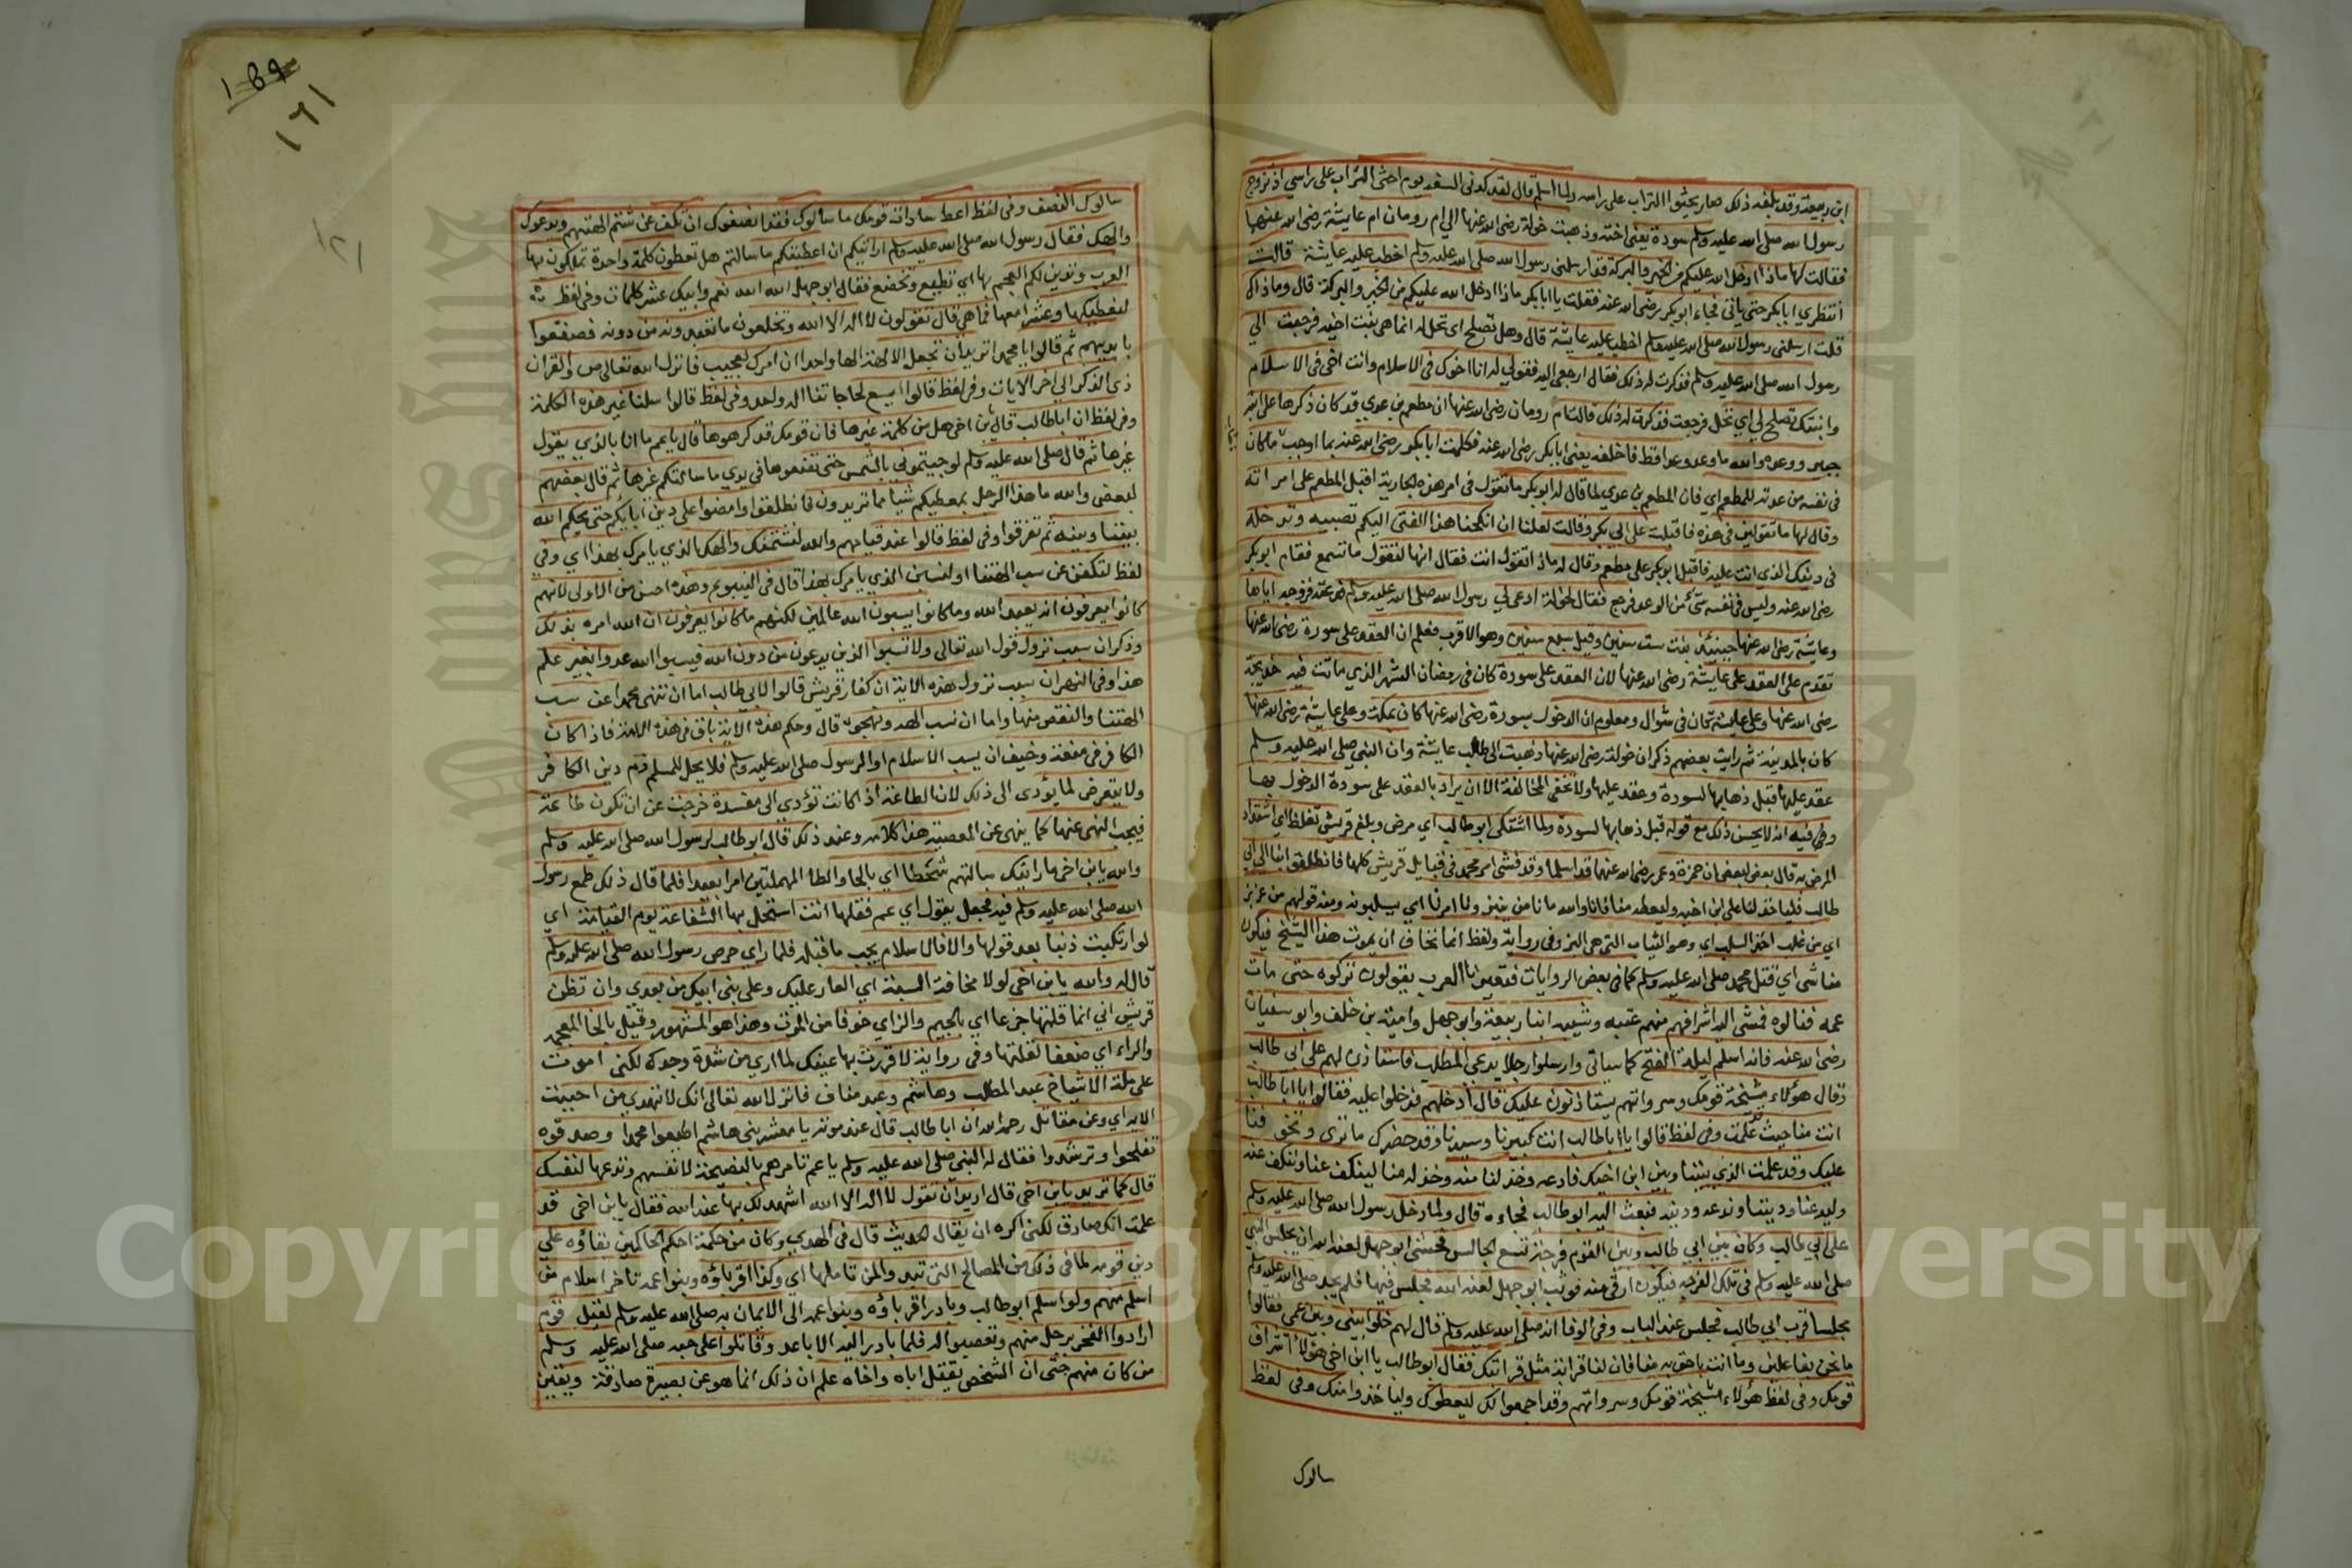 ابن ربيعة وقد بلغه ذلك صار يحثوا التراب على راسه ولما اسلم قال لقد كدنى السفه يوم احثى التراب على راسي اذ تزوج
رسول الله صلى الله عليه وسلم سودة يعنى اخته وذهبت خولة رضى الله عنها الي ام رومان ام عايشة رضى الله عنها
فقالت لها ماذا ادخل الله عليكم من الخير والبركة قد ارسلنى رسول الله صلى الله عليه وسلم اخطب عليه عايشة قالت
انتظري ابابكر حتى ياتى فجاء ابوبكر رضى الله عنه فقلت يا ابابكر ماذا ادخل الله عليكم من الخير والبركة قال وماذاك
قلت ارسلنى رسول الله صلى الله عليه وسلم اخطب عليه عايشة قال وهل تصلح اى تحل له انما هى بنت اخيه فرجعت الي
رسول الله صلى الله عليه وسلم فذكرت له ذلك فقال ارجعى اليه فقولي له انا اخوك فى الاسلام وانت اخى فى الاسلام
وابنتك تصلح لي اي تحل فرجعت فذكرت له ذلك قالت ام رومان رضى الله عنها ان مطعم بن عدي قد كان ذكرها على ابنه
جبير ووعده والله ما وعد وعدا قط فاخلفه يعنى ابابكر رضى الله عنه فكلمت ابابكر رضى الله عنه بما اوجب ما كان
فى نفسه من عدته للمطعم اي فان المطعم بن عدي لما قال له ابوبكر ما تقول فى امر هذه الجارية اقبل المطعم على امراته
وقال لها ما تقولين فى هذه فاقبلت على ابي بكر وقالت لعلنا ان انكحنا هذا الفتى اليكم تصبيه وتدخله
فى دينك الذى انت عليه فاقبل ابوبكر على مطعم وقال له ماذا تقول انت فقال انها لتقول ما تسمع فقام ابوبكر
رضى الله عنه وليس فى نفسه شئ من الوعد فرجع فقال لخولة ادعى لي رسول الله صلى الله عليه وسلم فدعته فزوجه اياها
وعايشة رضى الله عنها حينئذ بنت ست سنين وقيل سبع سنين وهو الاقرب فعلم ان العقد على سودة رضى الله عنها
تقدم على العقد على عايشة رضى الله عنها لان العقد على سودة كان فى رمضان الشهر الذي ماتت فيه خديجة
رضى الله عنها وعلى عايشة كان فى شوال ومعلوم ان الدخول بسودة رضى الله عنها كان بمكة وعلى عايشة رضى الله عنها
كان بالمدينة ثم رايت بعضهم ذكر ان خولة رضى الله عنها ذهبت الى طالب عايشة وان النبي صلى الله عليه وسلم
عقد عليها قبل ذهابها لسودة وعقد عليها ولا تخفى المخالفة الا ان يراد بالعقد على سودة الدخول بها
وفيه انه لا يحسن ذلك مع قوله قبل ذهابها لسودة ولما اشتكى ابوطالب اي مرض وبلغ قريش ثقله اي اشتداد
المرض به قال بعض لبعض ان حمزة وعمر رضى الله عنهما قد اسلما وقد فشى امر محمد فى قبايل قريش كلها فانطلقوا بنا الى ابي
طالب فلياخذ لنا على ابن اخيه وليعطه منا فانا والله ما نامن ان يبتزونا امرنا اي يسلبونه ومنه قولهم من عز بز
اي من غلب اخذ السلب اي وهو الثياب التى هى البز وفى رواية ولفظ انما نخاف ان يموت هذا الشيخ فيكون
منا شى اي قتل محمد صلى الله عليه وسلم كما فى بعض الروايات فتعيرنا العرب يقولون تركوه حتى مات
عمه فنالوه فمشى اليه اشرافهم منهم عتبه وشيبه ابنا ربيعة وابوجهل وامية بن خلف وابو سفيان
رضى الله عنه فانه اسلم ليلة الفتح كما سياتى وارسلوا رجلا يدعى المطلب فاستاذن لهم على ابي طالب
فقال هؤلاء مشيخة قومك وسرواتهم يستاذنون عليك قال ادخلهم فدخلوا عليه فقالوا يا ابا طالب
انت منا حيث علمت وفى لفظ قالوا يا اباطالب انت كبيرنا وسيدنا وقد حضرك ما ترى وتخوفنا
عليك وقد علمت الذي بيننا وبين ابن اخيك فادعه وخذ لنا منه وخذ له منا لينكف عنا وننكف عنه
وليدعنا وديننا وندعه ودينه فبعث اليه ابوطالب فجاءه قال ولما دخل رسول الله صلى الله عليه وسلم
على ابي طالب وكان بين ابي طالب وبين القوم فرجة تسع الجالس فخشى ابوجهل لعنه الله ان يجلس النبي
صلى الله عليه وسلم فى تلك الفرجه فيكون ارقى منه فوثب ابوجهل لعنه الله فجلس فيها فلم يجد صلى الله عليه وسلم
مجلسا قرب ابي طالب فجلس عند الباب وفى الوفا انه صلى الله عليه وسلم قال لهم خلوا بينى وبين عمى فقالوا
ما نحن بفاعلين وما انت باحق به منا فان لنا قرابة مثل قرابتك فقال ابوطالب يا ابن اخى هؤلاء اشراف
قومك وفى لفظ هؤلاء مشيخة قومك وسرواتهم وقد اجمعوا لك ليعطوك ولياخذوا منك وفى لفظ
سالوك
١٦١
سالوك النصف وفى لفظ اعط سادات قومك ما سالوك فقد انصفوك ان تكف عن شتم الهتهم ويدعوك
والهك فقال رسول الله صلى الله عليه وسلم ارايتكم ان اعطيتكم ما سالتم هل تعطون كلمة واحدة تملكون بها
العرب وتدين لكم العجم بها اي تطيع وتخضع فقال ابوجهل لعنه الله نعم وابيك عشر كلمات وفى لفظ
لنعطيكها وعشرا معها فما هى قال تقولون لا اله الا الله وتخلعون ما تعبدون من دونه فصفقوا
بايديهم ثم قالوا يا محمد اتريد ان تجعل الالهة الها واحدا ان امرك لعجيب فانزل الله تعالى ص والقران
ذى الذكر الى اخر الايات وفى لفظ قالوا ايسع لحاجاتنا اله واحد وفى لفظ قالوا سلنا غير هذه الكلمة
وفى لفظ ان اباطالب قال يابن اخى هل من كلمة غيرها فان قومك قد كرهوها قال يا عم ما انا بالذي يقول
غيرها ثم قال صلى الله عليه وسلم لو جيتمونى بالشمس حتى تضعوها فى يدي ما سالتكم غيرها ثم قال بعضهم
لبعض والله ما هذا الرجل بمعطيكم شيا مما تريدون فانطلقوا وامضوا على دين ابايكم حتى يحكم الله
بيننا وبينه ثم تفرقوا وفى لفظ قالوا عند قيامهم والله لنشتمنك والهك الذي يامرك بهذا اي وفى
لفظ لتكفن عن سب الهتنا او لنسبن الذي يامرك بهذا قال فى الينبوع وهذا احسن من الاولى لانهم
كانوا يعرفون انه يعبد الله وما كانوا يسبون الله عالمين لكنهم ما كانوا يعرفون ان الله امره بذلك
وذكر ان سبب نزول قول الله تعالى ولا تسبوا الذين يدعون من دون الله فيسبوا الله عدوا بغير علم
هذا وفى النهر ان سبب نزول هذه الاية ان كفار قريش قالوا لابي طالب اما ان تنهى محمدا عن سب
الهتنا والنقص منها واما ان نسب الهه ونهجوه قال وحكم هذه الاية باق فى هذه الامة فاذا كان
الكافر فى منعة وخيف ان يسب الاسلام او الرسول صلى الله عليه وسلم فلا يحل للمسلم ذم دين الكافر
ولا يتعرض لما يؤدى الى ذلك لان الطاعة اذا كانت تؤدي الى مفسدة خرجت عن ان تكون طاعة
فيجب النهى عنها كما ينهى عن المعصية هذا كلامه وعند ذلك قال ابوطالب لرسول الله صلى الله عليه وسلم
والله يابن اخى ما رايتك سالتهم شحطا اي بالحا والطا المهملتين امرا بعيدا فلما قال ذلك طمع رسول
الله صلى الله عليه وسلم فيه فجعل يقول اي عم فقلها انت استحل بها الشفاعة يوم القيامة اي
لو ارتكبت ذنبا بعد قولها والا فالاسلام يجب ما قبله فلما راي حرص رسول الله صلى الله عليه وسلم
قال له والله يابن اخى لولا مخافة السبة اي العار عليك وعلى بنى ابيك من بعدي وان تظن
قريش انى انما قلتها جزعا اي بالجيم والزاي خوفا من الموت وهذا هو المشهور وقيل بالخا المعجمه
والراء اي ضعفا لقلتها وفى رواية لاقررت بها عينك لما ارى من شدة وجدك لكنى اموت
على ملة الاشياخ عبد المطلب وهاشم وعبد مناف فانزل الله تعالى انك لا تهدي من احببت
الايه اي وعن مقاتل رحمه الله ان ابا طالب قال عند موته يا معشر بنى هاشم اطيعوا محمدا وصدقوه
تفلحوا وترشدوا فقال له النبي صلى الله عليه وسلم يا عم تامرهم بالنصيحة لانفسهم وتدعها لنفسك
قال فما تريد يابن اخى قال اريد ان تقول لا اله الا الله اشهد لك بها عند الله فقال يابن اخى قد
علمت انك صادق لكنى اكره ان يقال الحديث قال فى الهدي وكان من حكمة احكم الحاكمين بقاؤه على
دين قومه لما فى ذلك من المصالح التى تبدو لمن تاملها اي وكذا اقرباؤه وبنوا عمه تاخر اسلام من
اسلم منهم ولو اسلم ابوطالب وبادر اقرباؤه وبنوا عمه الى الايمان به صلى الله عليه وسلم لقيل قوم
ارادوا الفخر برجل منهم وتعصبوا له فلما بادر اليه الاباعد وقاتلوا على حبه صلى الله عليه وسلم
من كان منهم حتى ان الشخص يقتل اباه واخاه علم ان ذلك انما هو عن بصيرة صادقة ويقين